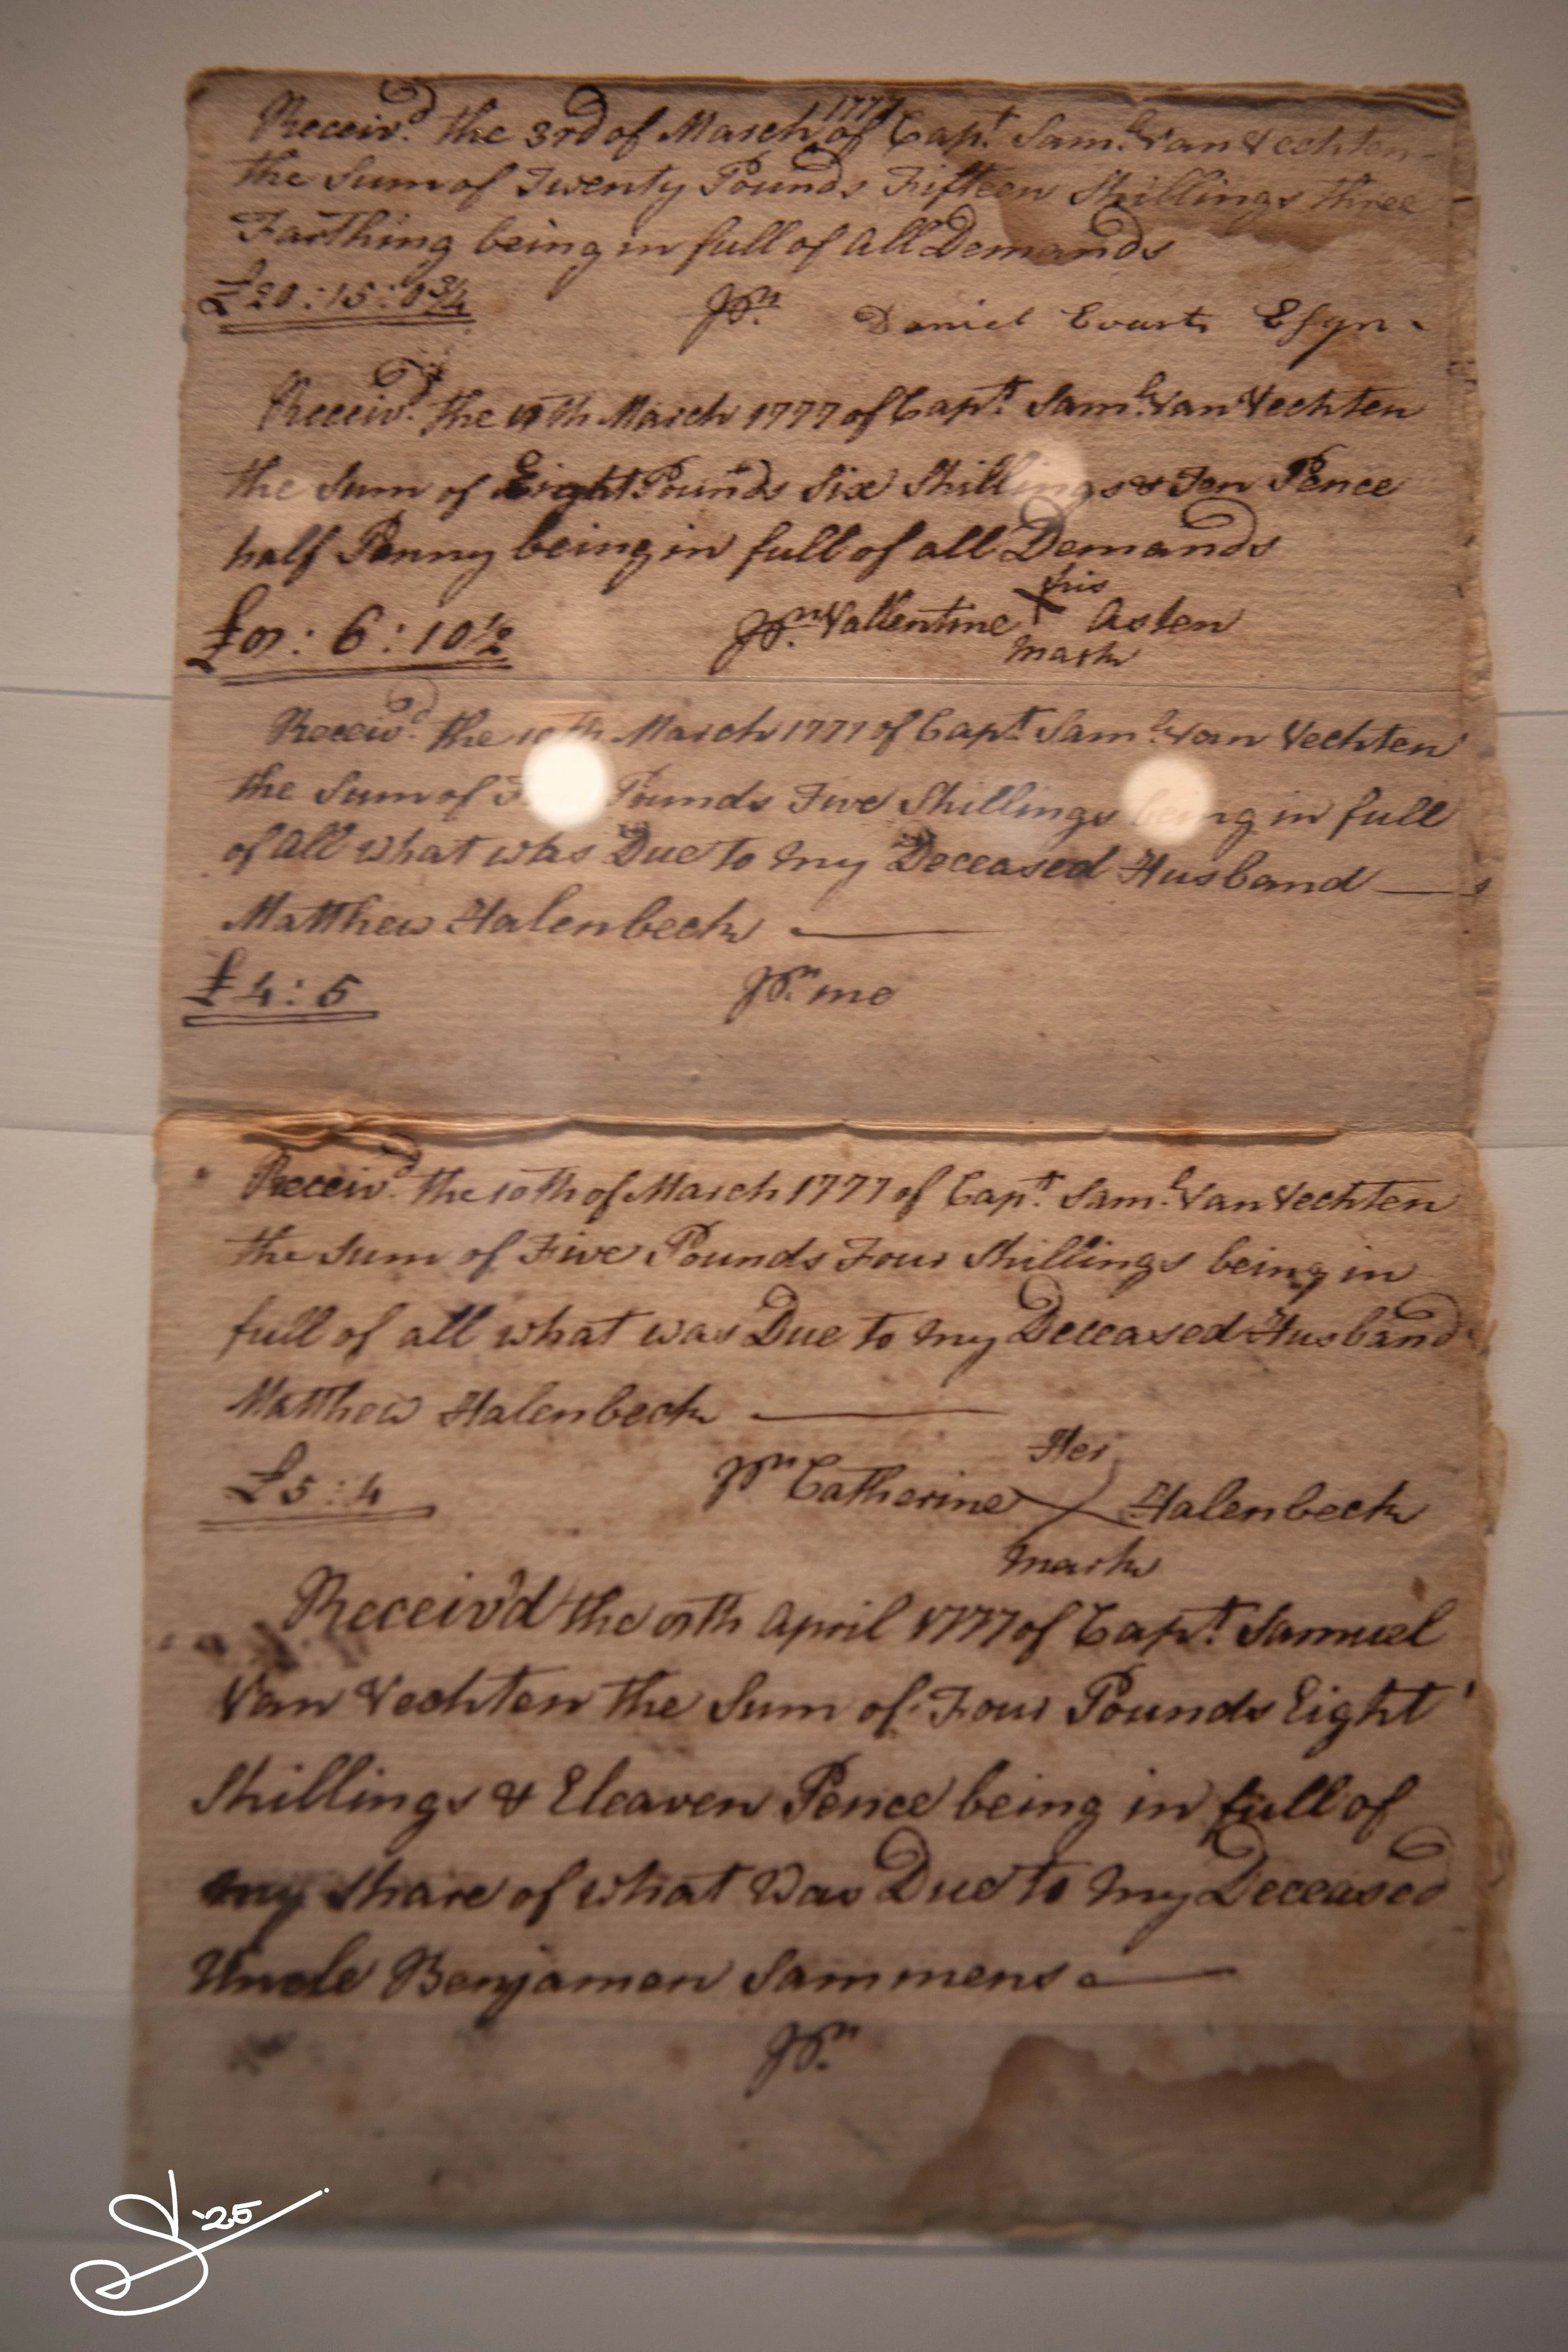 Receiv.d the 3rd of March 1777 of Capt. Sam.l Van Vechten
the Sum of Twenty Pounds Fifteen Shillings three
Farthing being in full of all Demands
£20:15:0¾ Pr. Daniel Evarts Esqr.
Receiv.d the March 1777 of Capt. Sam.l Van Vechten
the Sum of Eight Pounds Six Shillings & Ten Pence
half Penny being in full of all Demands
his
£8:6:10½ Pr. Vallentine X Asten
mark
Receiv.d the 10th March 1777 of Capt. Sam.l Van Vechten
the Sum of Pounds Five Shillings being in full
of all what was Due to my Deceased Husband
Matthew Halenbeck
£4:5 Pr. me
Receiv.d the 10th of March 1777 of Capt. Sam.l Van Vechten
the Sum of Five Pounds Four Shillings being in
full of all what was Due to my Deceased Husband
Matthew Halenbeck
Her
£5:4 Pr. Catherine X Halenbeck
mark
Receiv'd the 8th April 1777 of Capt. Samuel
Van Vechten the Sum of Four Pounds Eight
Shillings & Eleaven Pence being in full of
my share of what Was Due to my Deceased
Uncle Benjamen Sammens
Pr.
'25